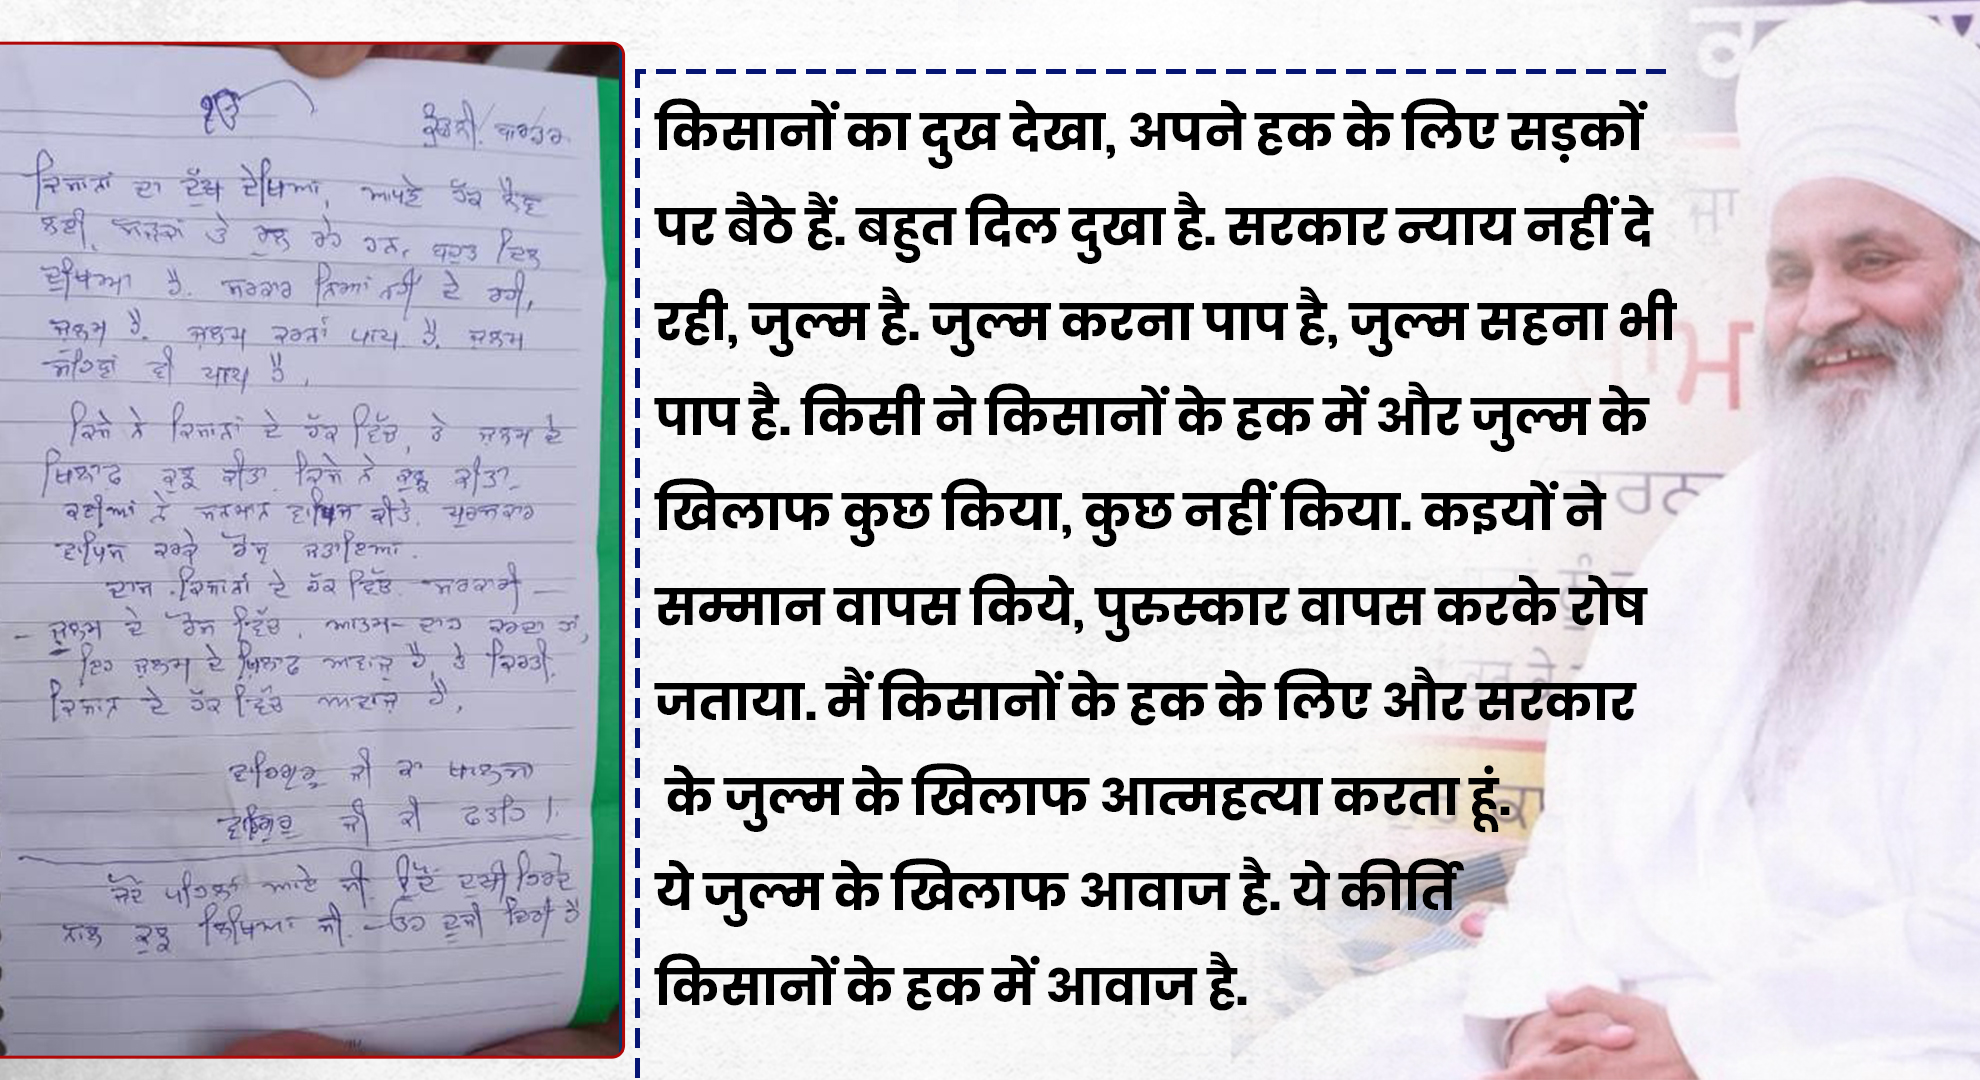 ੴ
ਕਿਸਾਨਾਂ ਦਾ ਦੁੱਖ ਦੇਖਿਆ, ਆਪਣੇ ਹੱਕ ਲੈਣ
ਲਈ, ਸੜਕਾਂ ਤੇ ਰੁਲ ਰਹੇ ਹਨ, ਬਹੁਤ ਦਿਲ
ਦੁਖਿਆ ਹੈ. ਸਰਕਾਰ ਨਿਆਂ ਨਹੀਂ ਦੇ ਰਹੀ,
ਜੁਲਮ ਹੈ. ਜੁਲਮ ਕਰਨਾਂ ਪਾਪ ਹੈ, ਜੁਲਮ
ਸਹਿਣਾਂ ਵੀ ਪਾਪ ਹੈ,
ਕਿਸੇ ਨੇ ਕਿਸਾਨਾਂ ਦੇ ਹੱਕ ਵਿੱਚ, ਤੇ ਜੁਲਮ ਦੇ
ਖਿਲਾਫ ਕੁਝ ਕੀਤਾ, ਕਿਸੇ ਨੇ ਕੁਝ ਕੀਤਾ
ਕਈਆਂ ਨੇ ਸਨਮਾਨ ਵਾਪਿਸ ਕੀਤੇ, ਪੁਰਸਕਾਰ
ਵਾਪਿਸ ਕਰਕੇ ਰੋਸ ਜਤਾਇਆ.
ਦਾਸ ਕਿਸਾਨਾਂ ਦੇ ਹੱਕ ਵਿੱਚ ਸਰਕਾਰੀ —
- ਜੁਲਮ ਦੇ ਰੋਸ ਵਿੱਚ, ਆਤਮ-ਦਾਹ ਕਰਦਾ ਹਾਂ,
ਇਹ ਜੁਲਮ ਦੇ ਖ਼ਿਲਾਫ ਅਵਾਜ਼ ਹੈ, ਤੇ ਕਿਰਤੀ
ਕਿਸਾਨ ਦੇ ਹੱਕ ਵਿੱਚ ਆਵਾਜ਼ ਹੈ,
ਵਾਹਿਗੁਰੂ ਜੀ ਕਾ ਖਾਲਸਾ
ਵਾਹਿਗੁਰੂ ਜੀ ਕੀ ਫਤਹਿ ।
ਪਹਿਲਾਂ ਆਏ ਸੀ,
ਨਾਲ ਕੁਝ ਲਿਖਿਆ ਸੀ. ਹੈ
किसानों का दुख देखा, अपने हक के लिए सड़कों
पर बैठे हैं. बहुत दिल दुखा है. सरकार न्याय नहीं दे
रही, जुल्म है. जुल्म करना पाप है, जुल्म सहना भी
पाप है. किसी ने किसानों के हक में और जुल्म के
खिलाफ कुछ किया, कुछ नहीं किया. कइयों ने
सम्मान वापस किये, पुरुस्कार वापस करके रोष
जताया. मैं किसानों के हक के लिए और सरकार
के जुल्म के खिलाफ आत्महत्या करता हूं.
ये जुल्म के खिलाफ आवाज है. ये कीर्ति
किसानों के हक में आवाज है.